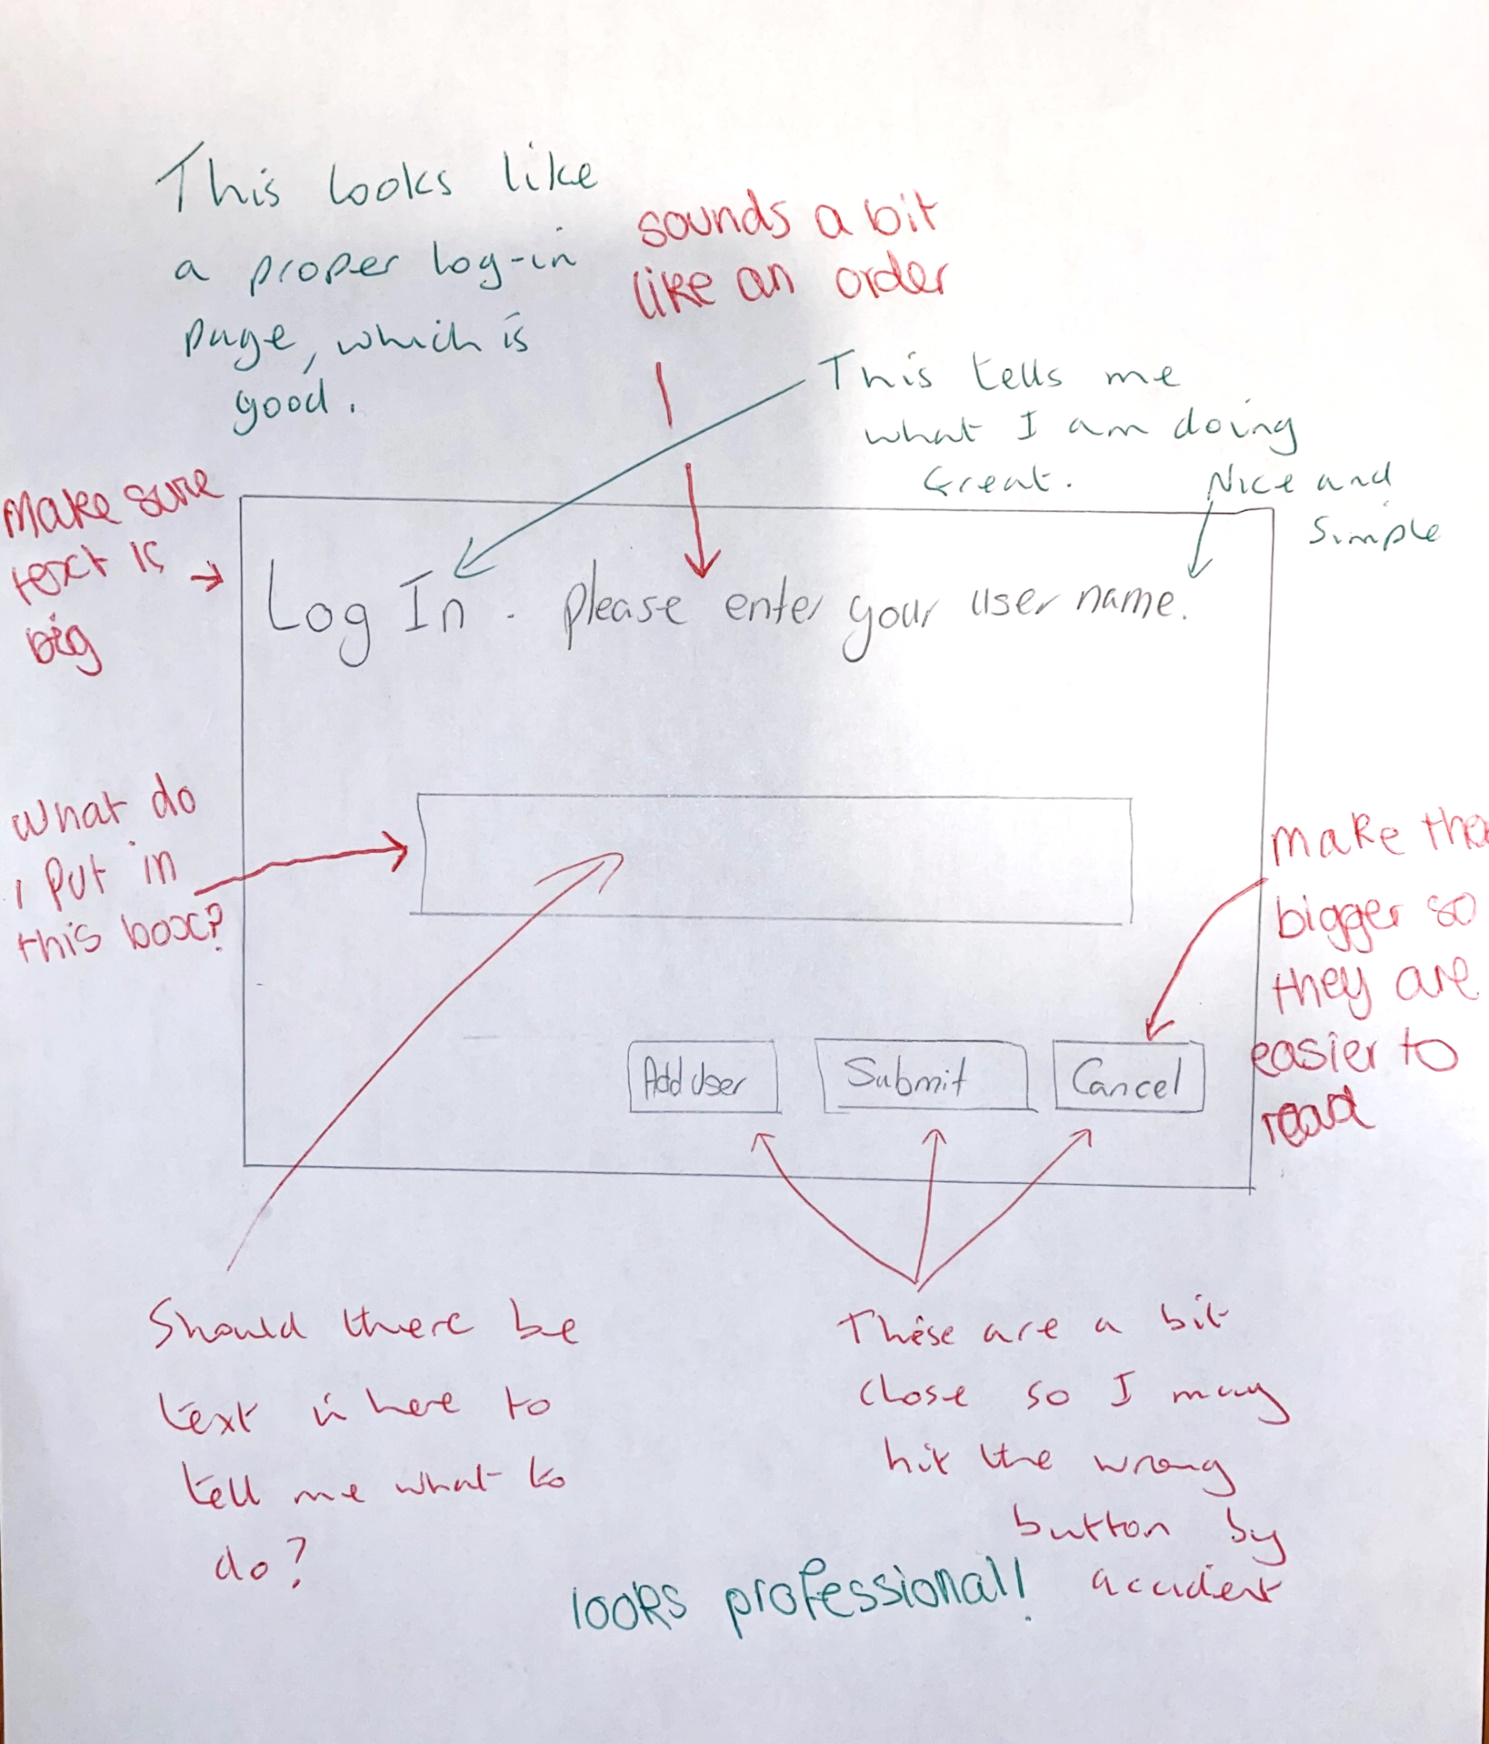 This looks like
a proper log-in
page, which is
good.
sounds a bit
like an order
This tells me
what I am doing
Great.
Nice and
Simple
Make sure
text is
big
Log In . please enter your user name.
What do
i put in
this box?
make the
bigger so
they are
easier to
read
Add User
Submit
Cancel
Should there be
text in here to
tell me what to
do?
These are a bit
close so I may
hit the wrong
button by
accident
looks professional!